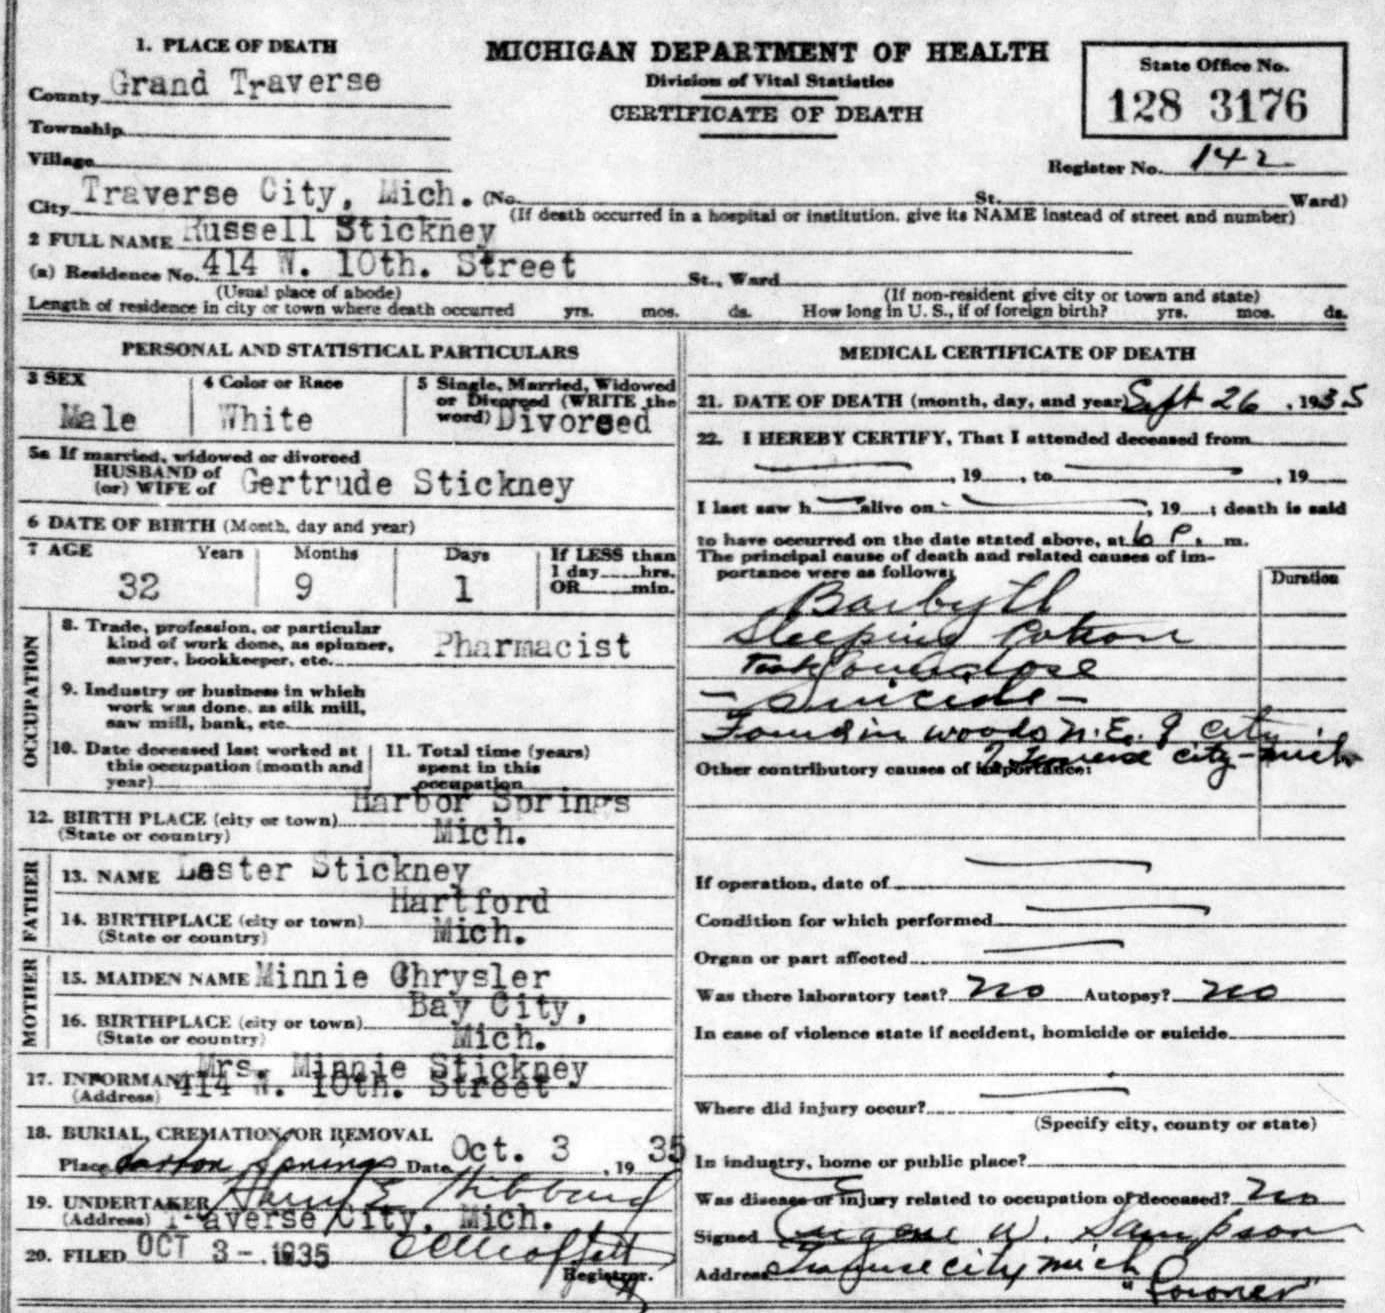 MICHIGAN DEPARTMENT OF HEALTH
Division of Vital Statistics
CERTIFICATE OF DEATH
State Office No.
128 3176
Register No. 142
1. PLACE OF DEATH
County Grand Traverse
Township
Village
City Traverse City, Mich. (No. St. Ward)
(If death occurred in a hospital or institution, give its NAME instead of street and number)
2 FULL NAME Russell Stickney
(a) Residence No. 414 W. 10th. Street St., Ward
(Usual place of abode) (If non-resident give city or town and state)
Length of residence in city or town where death occurred yrs. mos. ds. How long in U. S., if of foreign birth? yrs. mos. ds.
PERSONAL AND STATISTICAL PARTICULARS
3 SEX
Male
4 Color or Race
White
5 Single, Married, Widowed
or Divorced (WRITE the
word) Divorced
5a If married, widowed or divorced
HUSBAND of
(or) WIFE of Gertrude Stickney
6 DATE OF BIRTH (Month, day and year)
7 AGE Years Months Days If LESS than
1 day hrs.
OR min.
32 9 1
OCCUPATION
8. Trade, profession, or particular
kind of work done, as spinner,
sawyer, bookkeeper, etc. Pharmacist
9. Industry or business in which
work was done, as silk mill,
saw mill, bank, etc.
10. Date deceased last worked at
this occupation (month and
year)
11. Total time (years)
spent in this
occupation
12. BIRTH PLACE (city or town) Harbor Springs
(State or country) Mich.
FATHER
13. NAME Lester Stickney
14. BIRTHPLACE (city or town) Hartford
(State or country) Mich.
MOTHER
15. MAIDEN NAME Minnie Chrysler
16. BIRTHPLACE (city or town) Bay City,
(State or country) Mich.
17. INFORMANT Mrs. Minnie Stickney
(Address) 414 W. 10th. Street
18. BURIAL, CREMATION, OR REMOVAL
Place Harbor Springs Date Oct. 3, 1935
19. UNDERTAKER Hibbard
(Address) Traverse City, Mich.
20. FILED OCT 3-1935
Registrar.
MEDICAL CERTIFICATE OF DEATH
21. DATE OF DEATH (month, day, and year) Sept 26, 1935
22. I HEREBY CERTIFY, That I attended deceased from
, 19 , to , 19
I last saw h alive on , 19 ; death is said
to have occurred on the date stated above, at 6 P. m.
The principal cause of death and related causes of im-
portance were as follows:
Duration
Sleeping Potion
Took overdose
- Suicide -
Found in woods N.E. of City
Traverse City - Mich
Other contributory causes of importance:
If operation, date of
Condition for which performed
Organ or part affected
Was there laboratory test? no Autopsy? no
In case of violence state if accident, homicide or suicide
Where did injury occur?
(Specify city, county or state)
In industry, home or public place?
Was disease or injury related to occupation of deceased? no
Signed Eugene W. Sampson
Address Traverse City Mich
"Coroner"